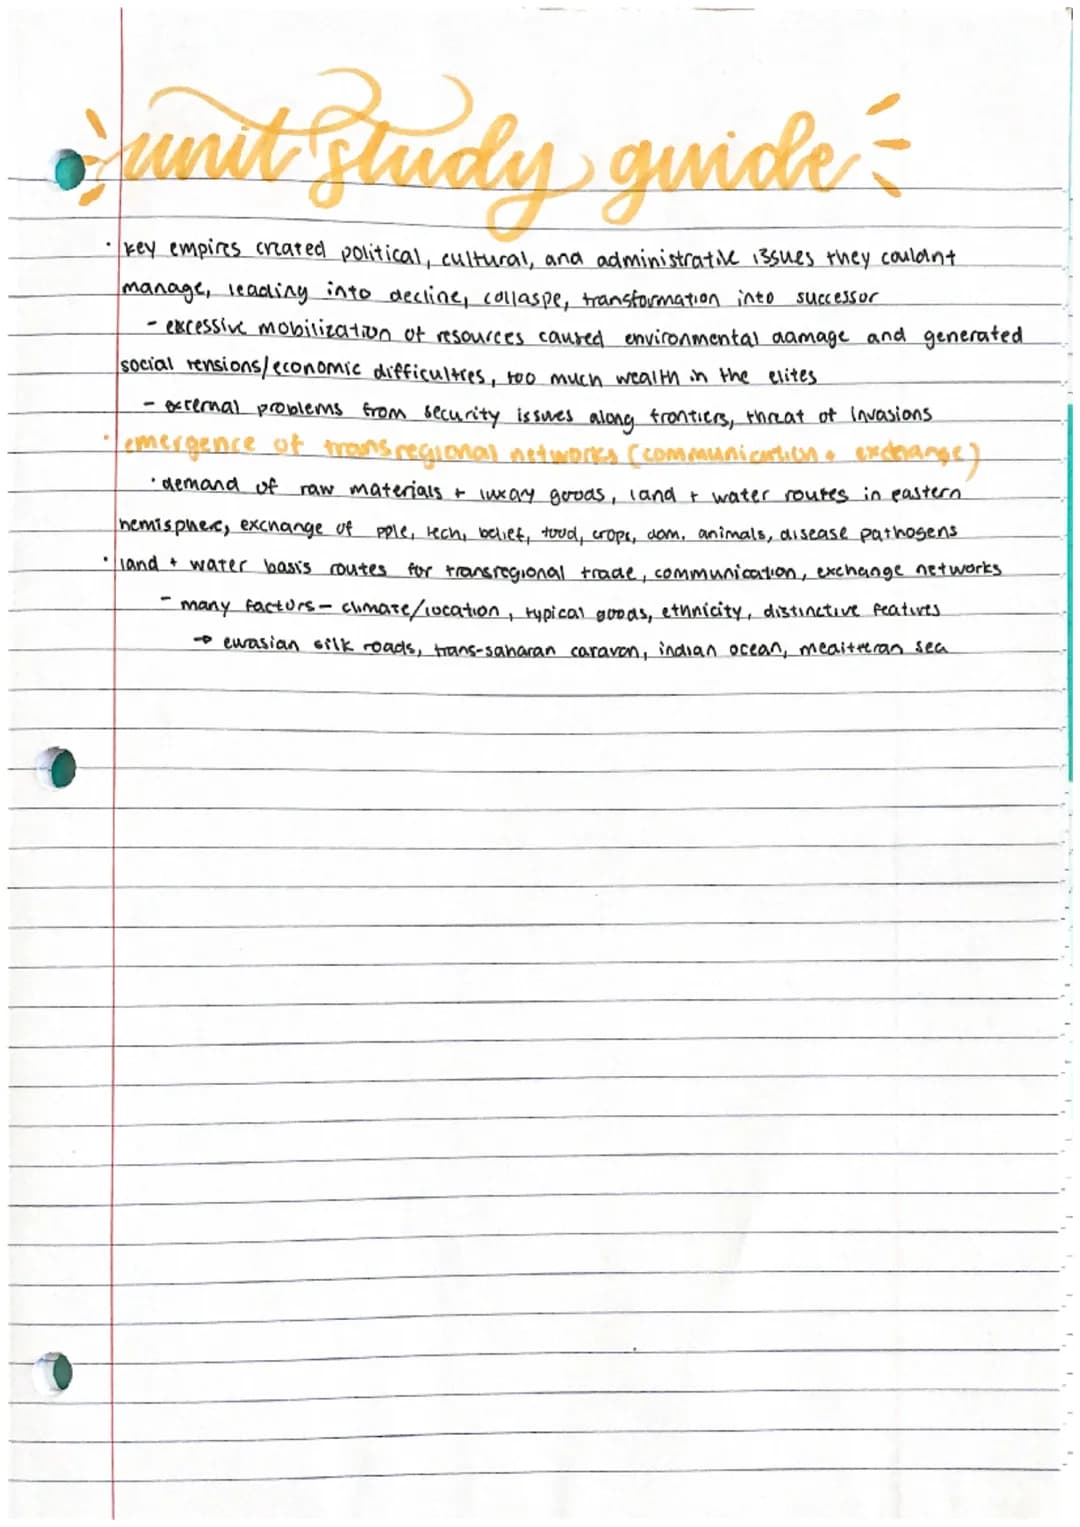 unit study guide
· key empires created political, cultural, and administrative issues they couldnt
manage, leading into decline, collaspe, transformation into successor
- excessive mobilization of resources caused environmental damage and generated
social tensions/economic difficulties, too much wealth in the elites
- external problems from security issues along frontiers, threat of invasions
· emergence of transregional networks (communication + exchange)
· demand of raw materials + luxary goods, land + water routes in eastern
hemisphere, exchange of pple, tech, belief, food, crops, dom. animals, disease pathogens
· land + water basis routes for transregional trade, communication, exchange networks
- many factors - climate/location, typical goods, ethnicity, distinctive features
→ eurasian silk roads, trans-saharan caravan, indian ocean, meditteran sea